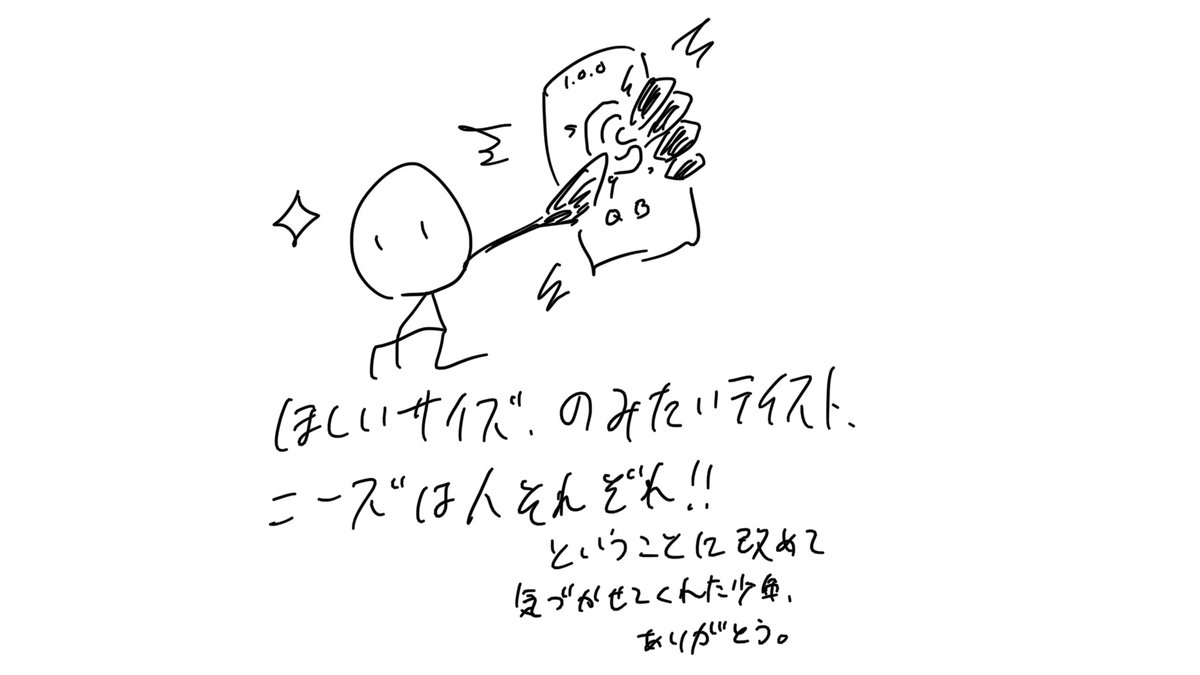 1.0.0
QB
ほしいサイズ、のみたいテイスト、
ニーズは人それぞれ!!
ということに改めて
気づかせてくれた少年、
ありがとう。